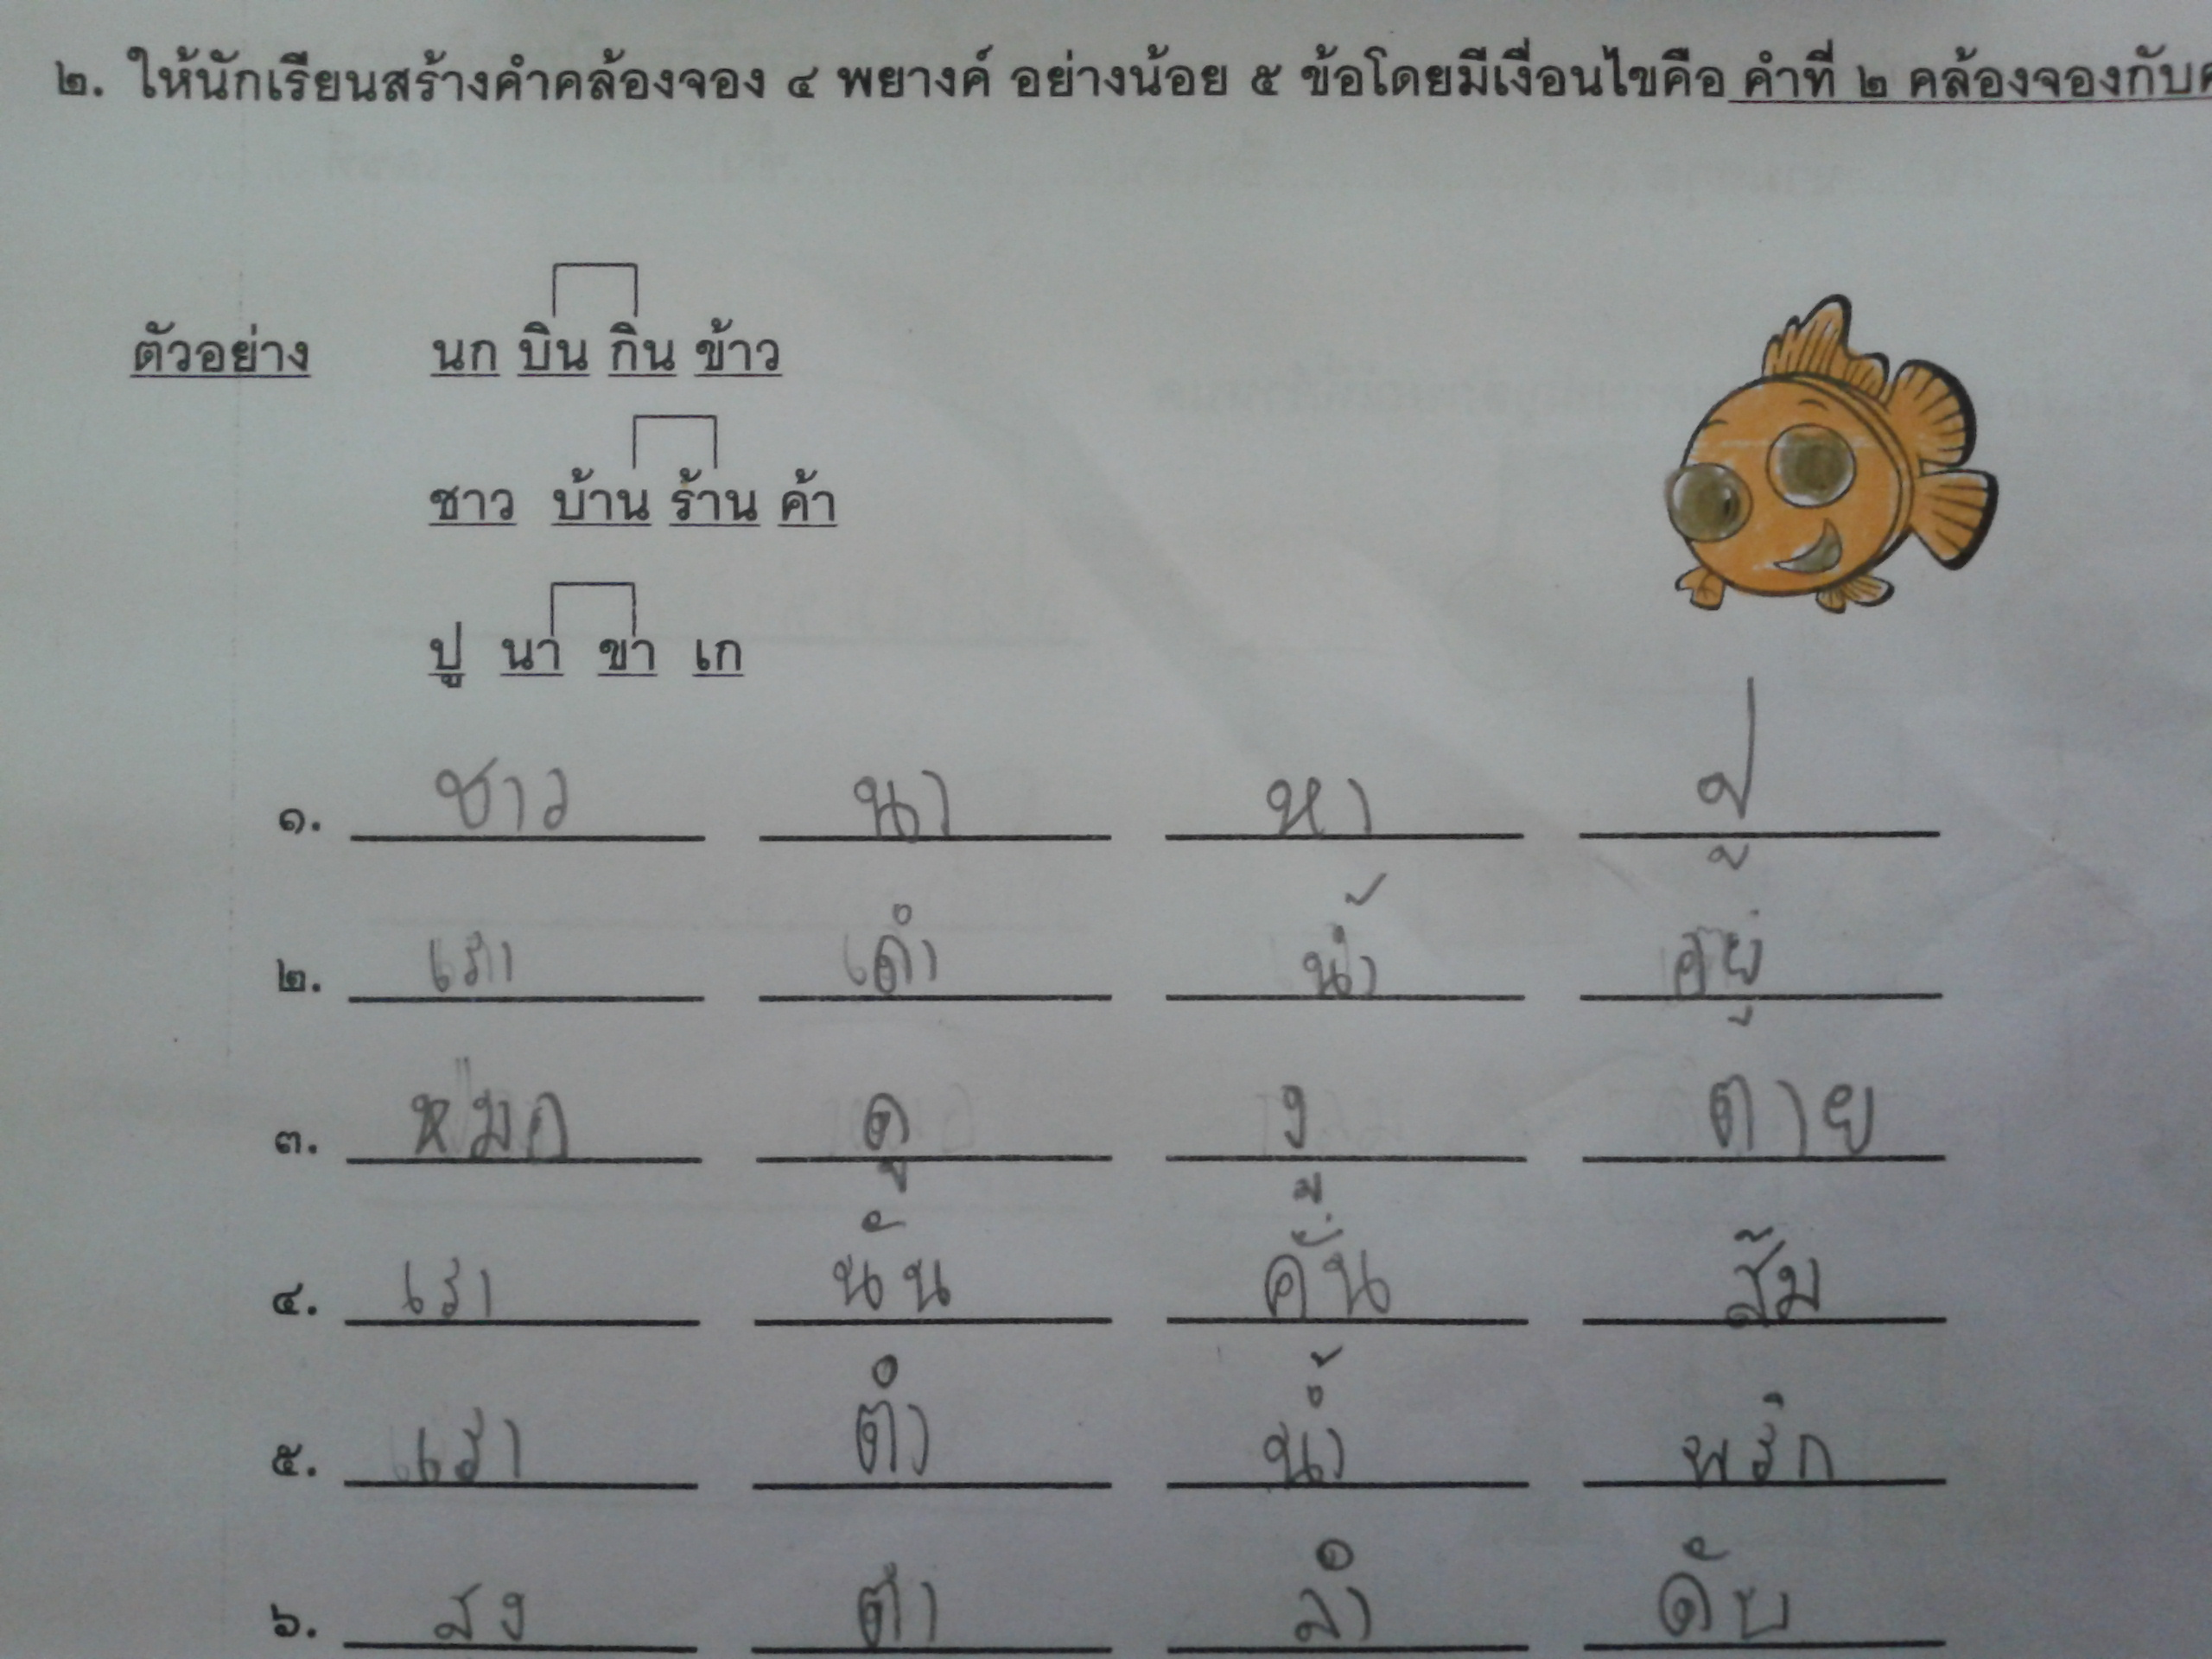 ๒. ให้นักเรียนสร้างคำคล้องจอง ๔ พยางค์ อย่างน้อย ๕ ข้อโดยมีเงื่อนไขคือ คำที่ ๒ คล้องจองกับ
ตัวอย่าง นก บิน กิน ข้าว
ชาว บ้าน ร้าน ค้า
ปู นา ขา เก
๑. ชาว นา หา ปู
๒. เรา ดำ น้ำ อยู่
๓. หมอ ดู งู ตาย
๔. เรา นั้น คั้น ส้ม
๕. เรา ตำ น้ำ พริก
๖. ดับ